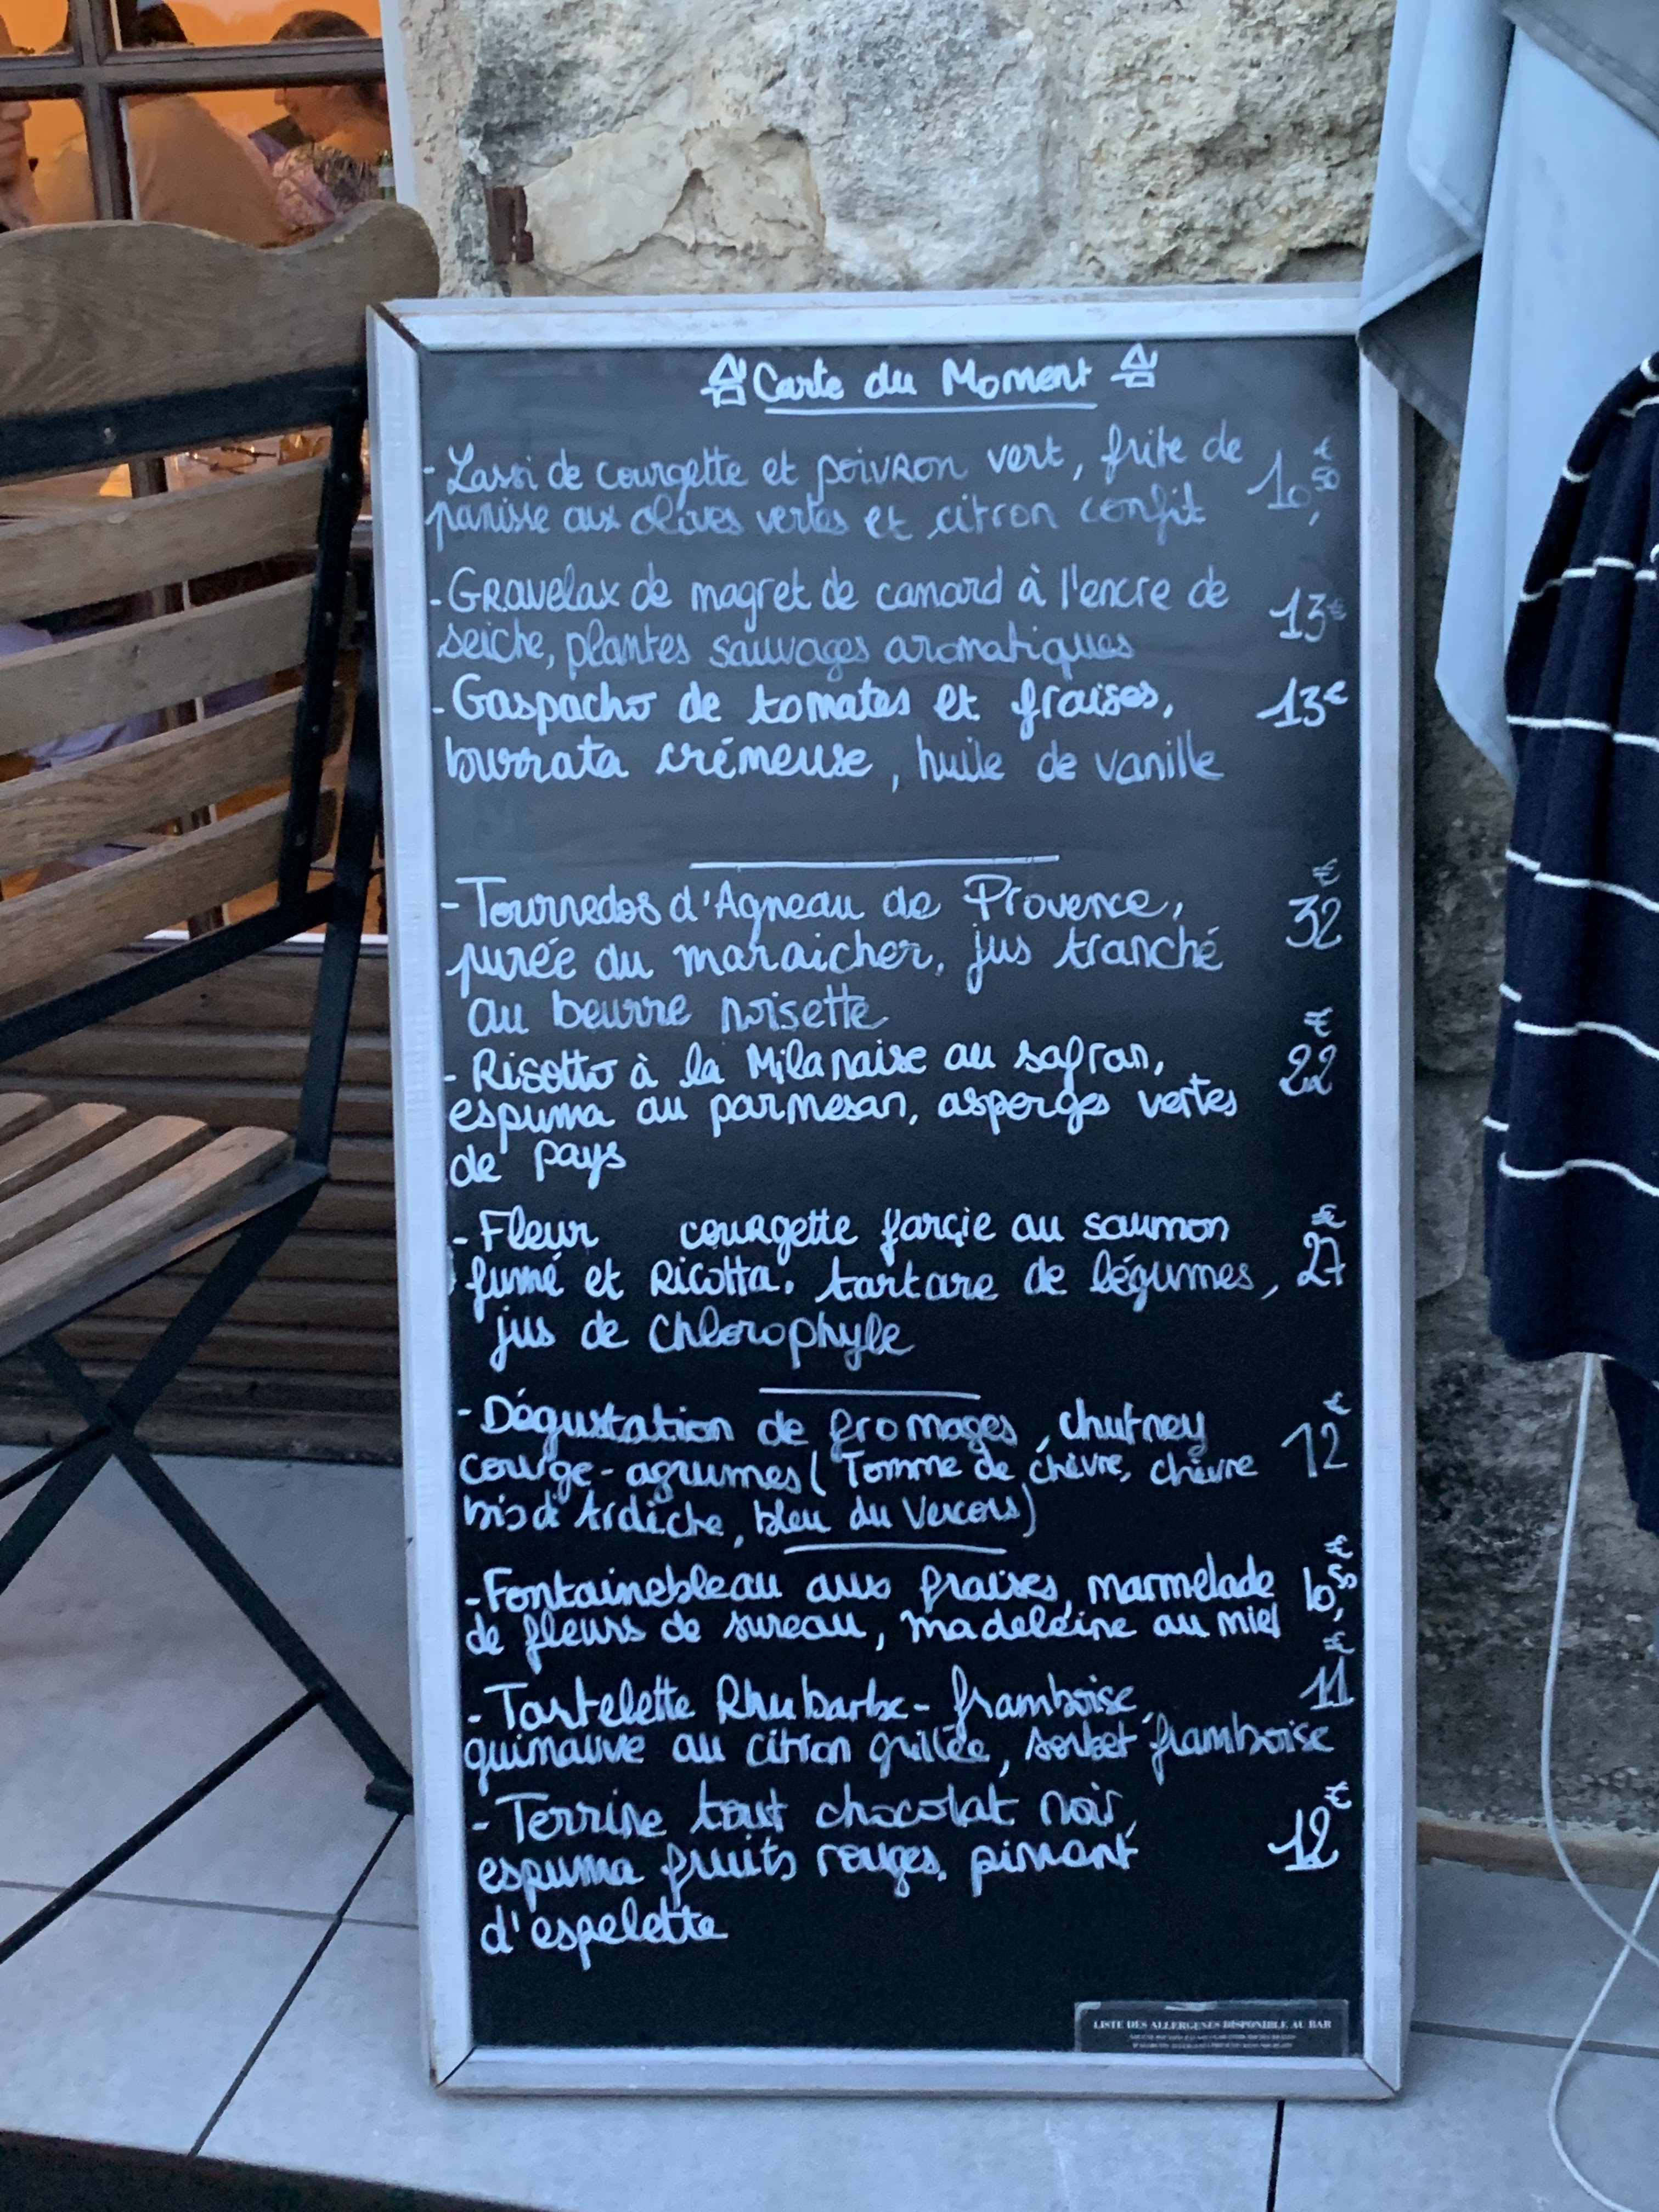 Carte du Moment
- Lassi de courgette et poivron vert, frite de 10,50€
panisse aux olives vertes et citron confit
- Gravelax de magret de canard à l'encre de 13€
seiche, plantes sauvages aromatiques
- Gaspacho de tomates et fraises, 13€
burrata crémeuse, huile de vanille
- Tournedos d'Agneau de Provence, 32€
purée du maraicher, jus tranché
au beurre noisette
- Risotto à la Milanaise au safran, 22€
espuma au parmesan, asperges vertes
de pays
- Fleur courgette farçie au saumon 27€
fumé et Ricotta, tartare de légumes,
jus de Chlorophyle
- Dégustation de fromages, chutney 12€
courge-agrumes (Tomme de chèvre, chèvre
bio d'Ardèche, bleu du Vercors)
- Fontainebleau aux fraises, marmelade 10,50€
de fleurs de sureau, madeleine au miel
- Tartelette Rhubarbe-framboise, 11€
guimauve au citron grillée, sorbet framboise
- Terrine tout chocolat noir, 12€
espuma fruits rouges, piment
d'espelette
LISTE DES ALLERGENES DISPONIBLE AU BAR